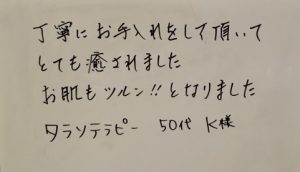 丁寧にお手入れをして頂いて
とても癒されました
お肌もツルン!!となりました
タラソテラピー 50代 K様